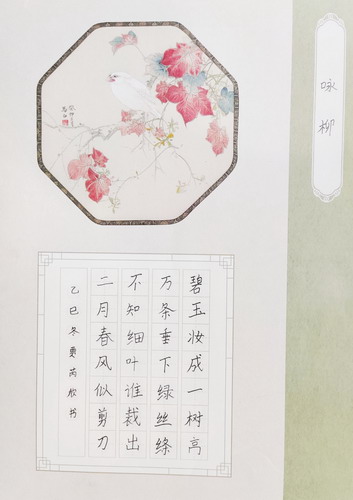 咏柳
碧玉妆成一树高
万条垂下绿丝绦
不知细叶谁裁出
二月春风似剪刀
乙巳冬 芮欣书